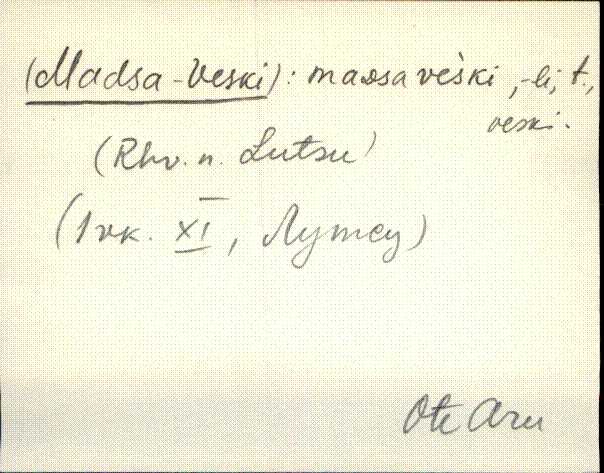 (Madsa-Veski): maᴅsa veški, -li, t.,
veski.
(Rhv. n. Lutsu)
(1 vk. XI, Лутсу)
Ote Aru